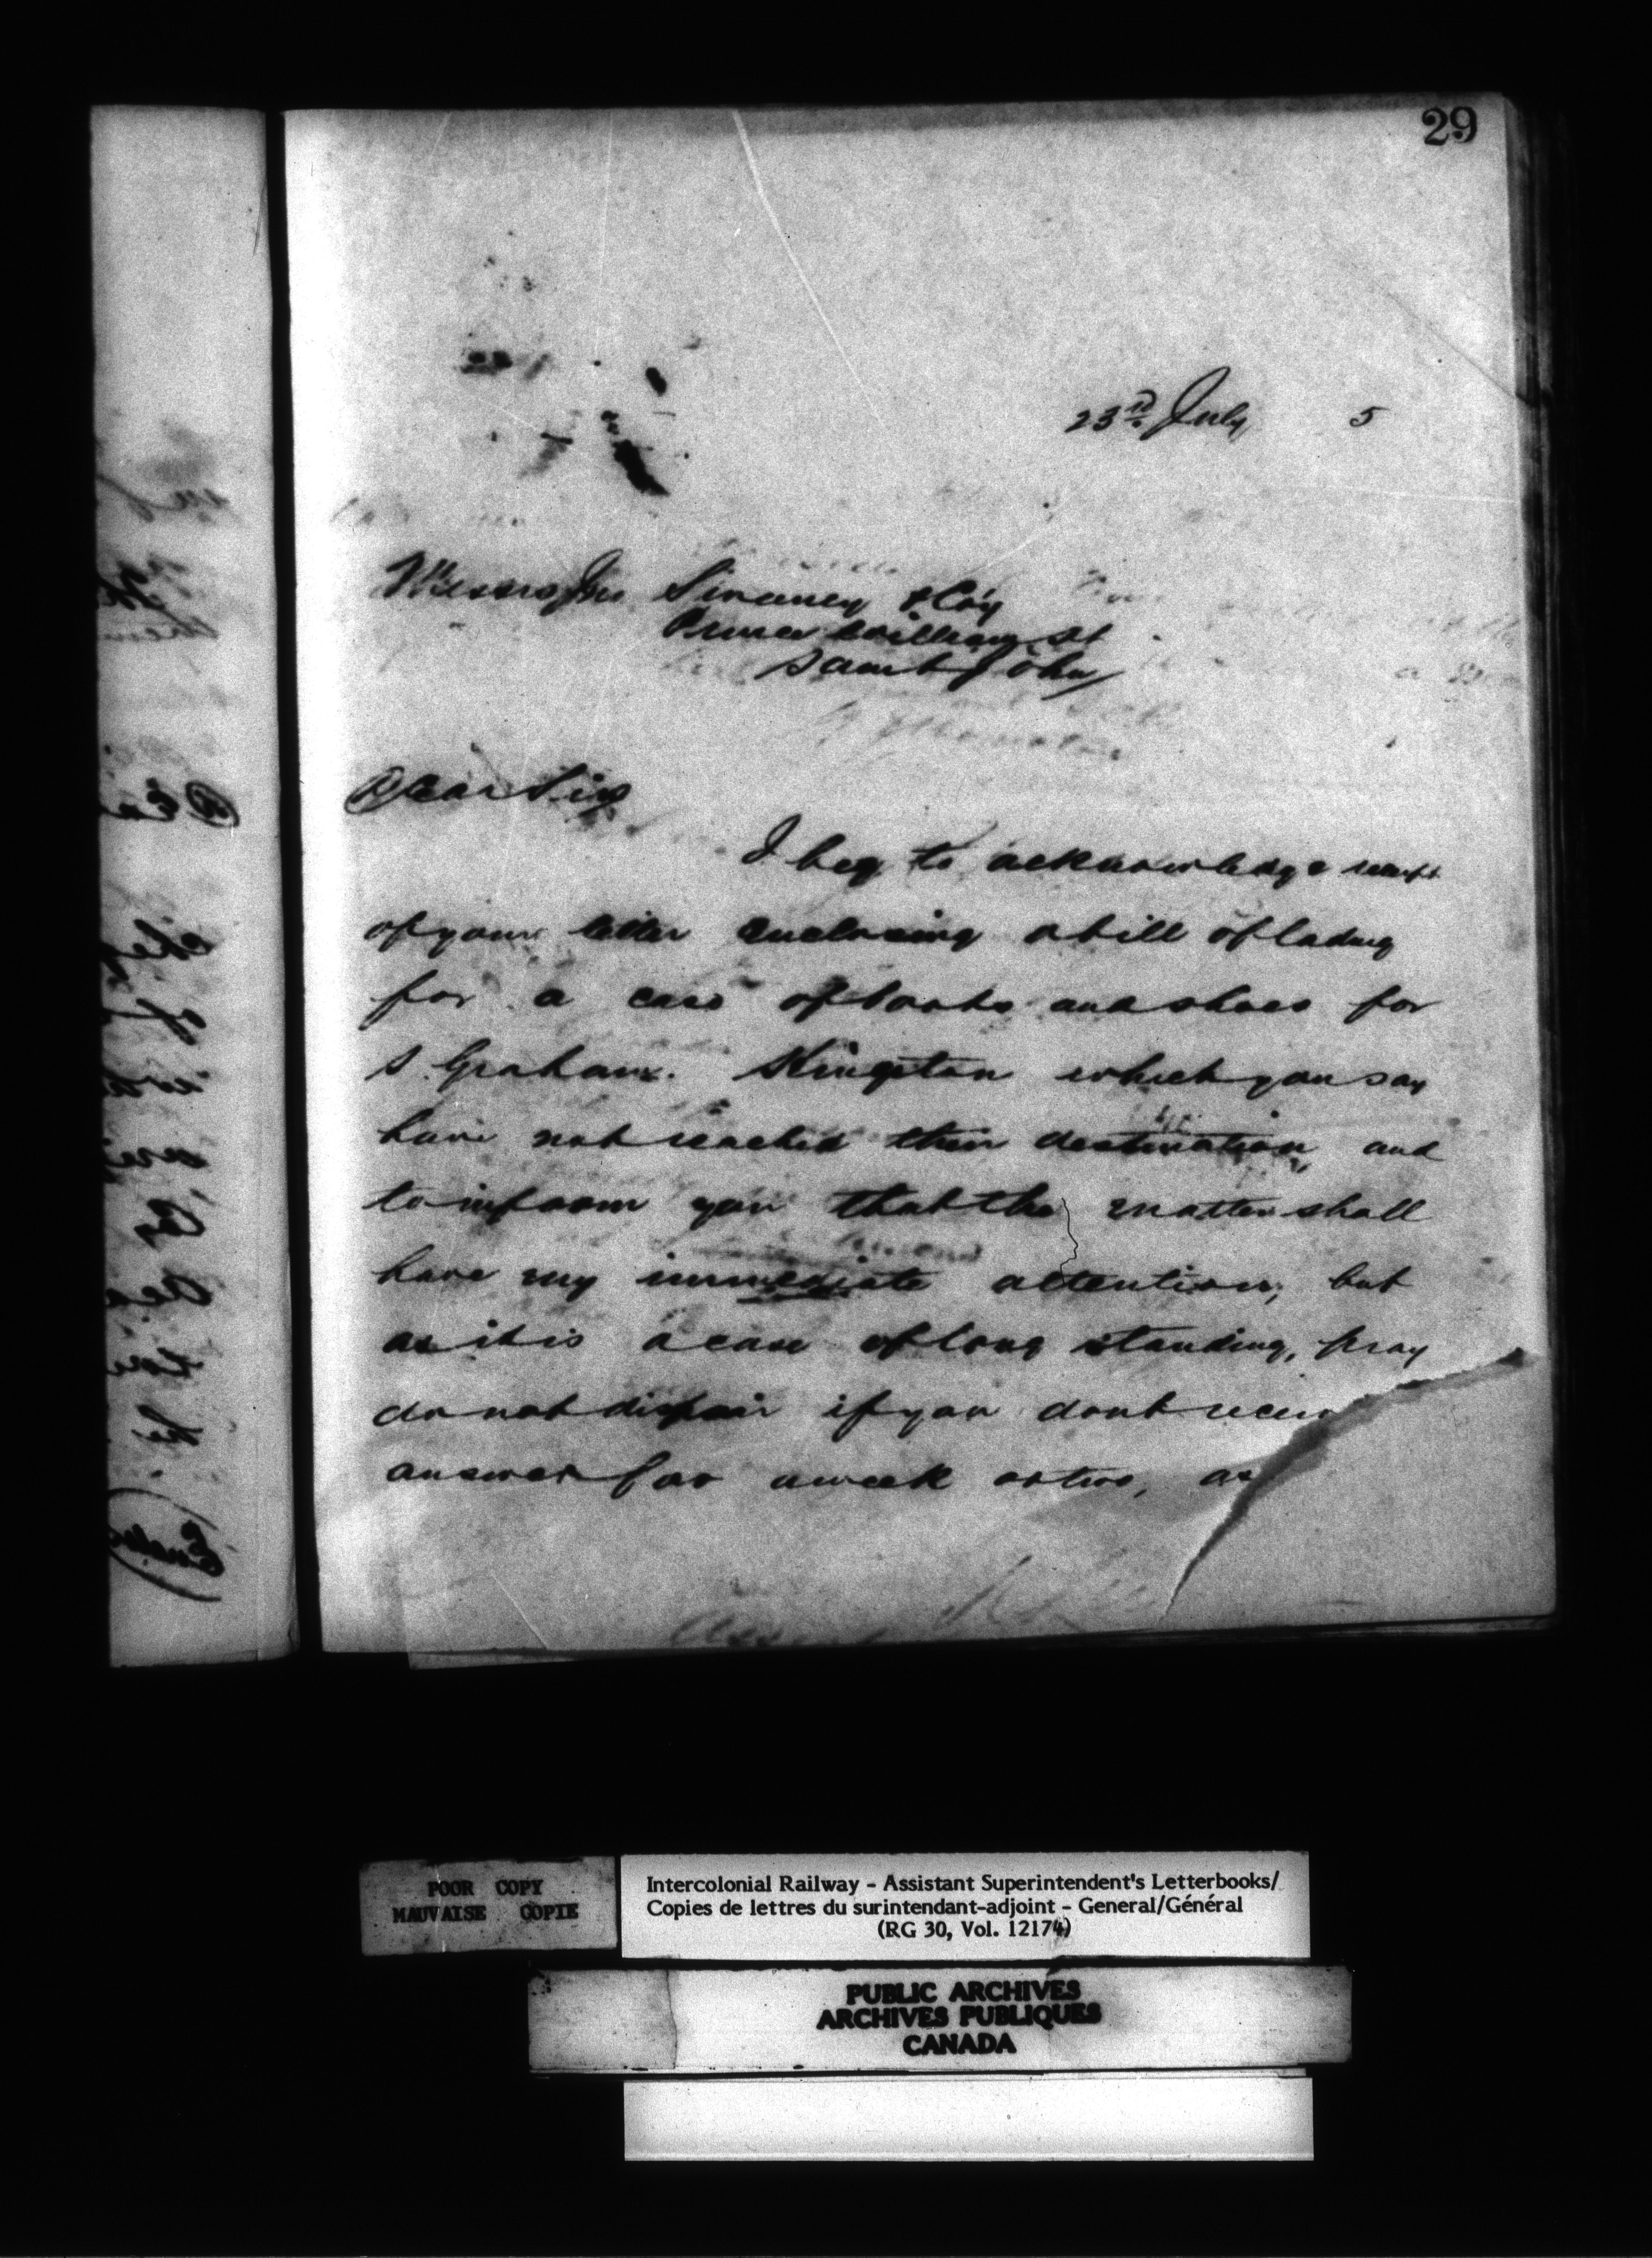 29
23rd July 5
Messrs Jno Sweeney & Coy
Prince William St
Saint John
Dear Sir
I beg to acknowledge receipt
of your letter enclosing a bill of lading
for a case of boots and shoes for
S. Graham. Kingston which you say
have not reached their destination and
to inform you that the matter shall
have my immediate attention, but
as it is a case of long standing, pray
do not dispair if you dont receiv
answer for a week or two, as
POOR COPY
MAUVAISE COPIE
Intercolonial Railway - Assistant Superintendent's Letterbooks/
Copies de lettres du surintendant-adjoint - General/Général
(RG 30, Vol. 12174)
PUBLIC ARCHIVES
ARCHIVES PUBLIQUES
CANADA